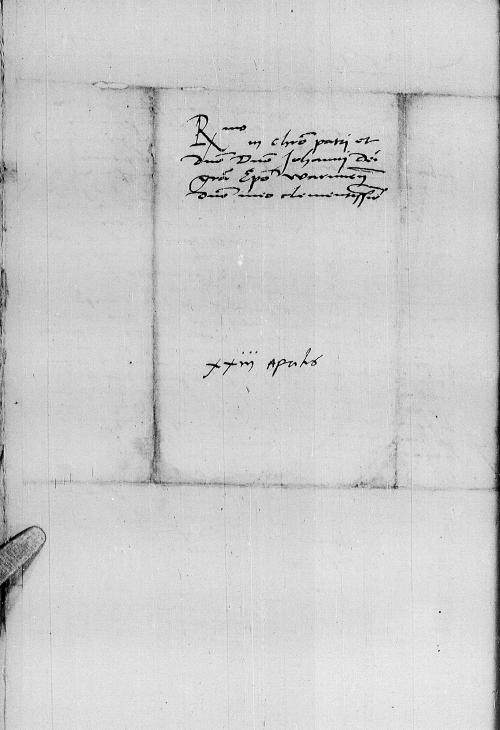 R^mo in chro patri et
dno Dno Johanni dei
gra Epo Warmien
dno meo clementissimo
xxiii Aprilis